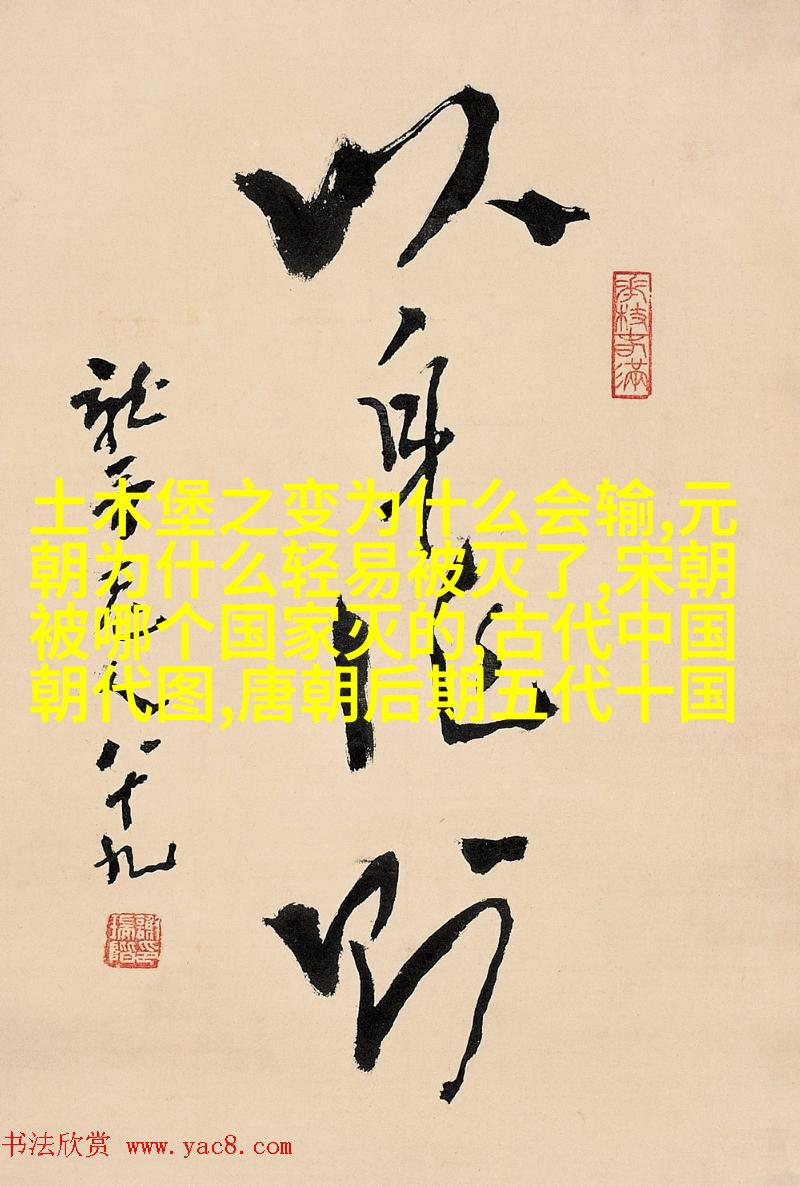 以身作则
八十九
土木堡之变为什么会输,元
朝为什么轻易被灭了,宋朝
被哪个国家灭的,古代中国
朝代图,唐朝后期五代十国
书法欣赏 www.yac8.com